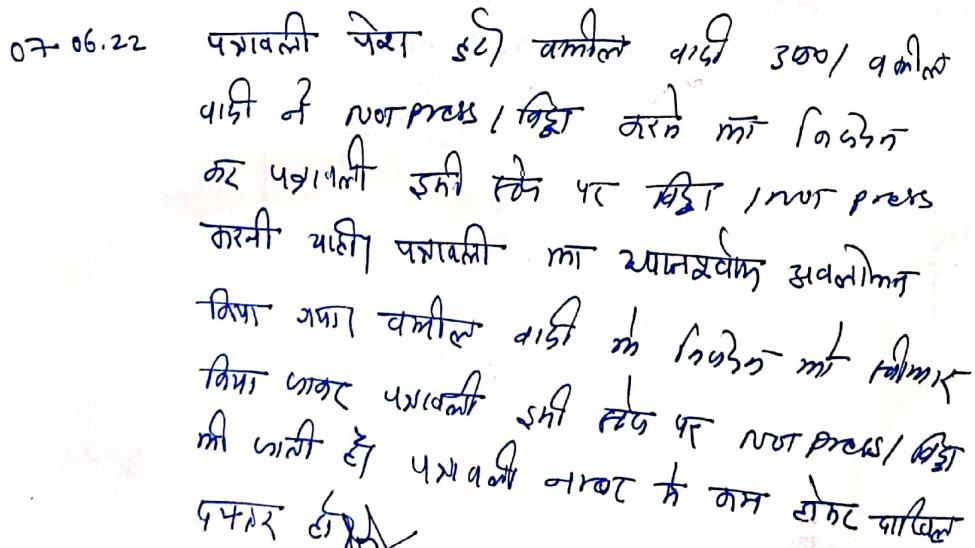 07-06.22 पत्रावली पेश हुई। वकील वादी उप०। वकील
वादी ने NOT press / विड्रा करने का निवेदन
कर पत्रावली इसी स्टेज पर विड्रा / NOT press
करनी चाही। पत्रावली का ध्यानपूर्वक अवलोकन
किया गया। वकील वादी के निवेदन को स्वीकार
किया जाकर पत्रावली इसी स्टेज पर NOT press / विड्रा
की जाती है। पत्रावली नम्बर से कम होकर दाखिल
दफ्तर हो।